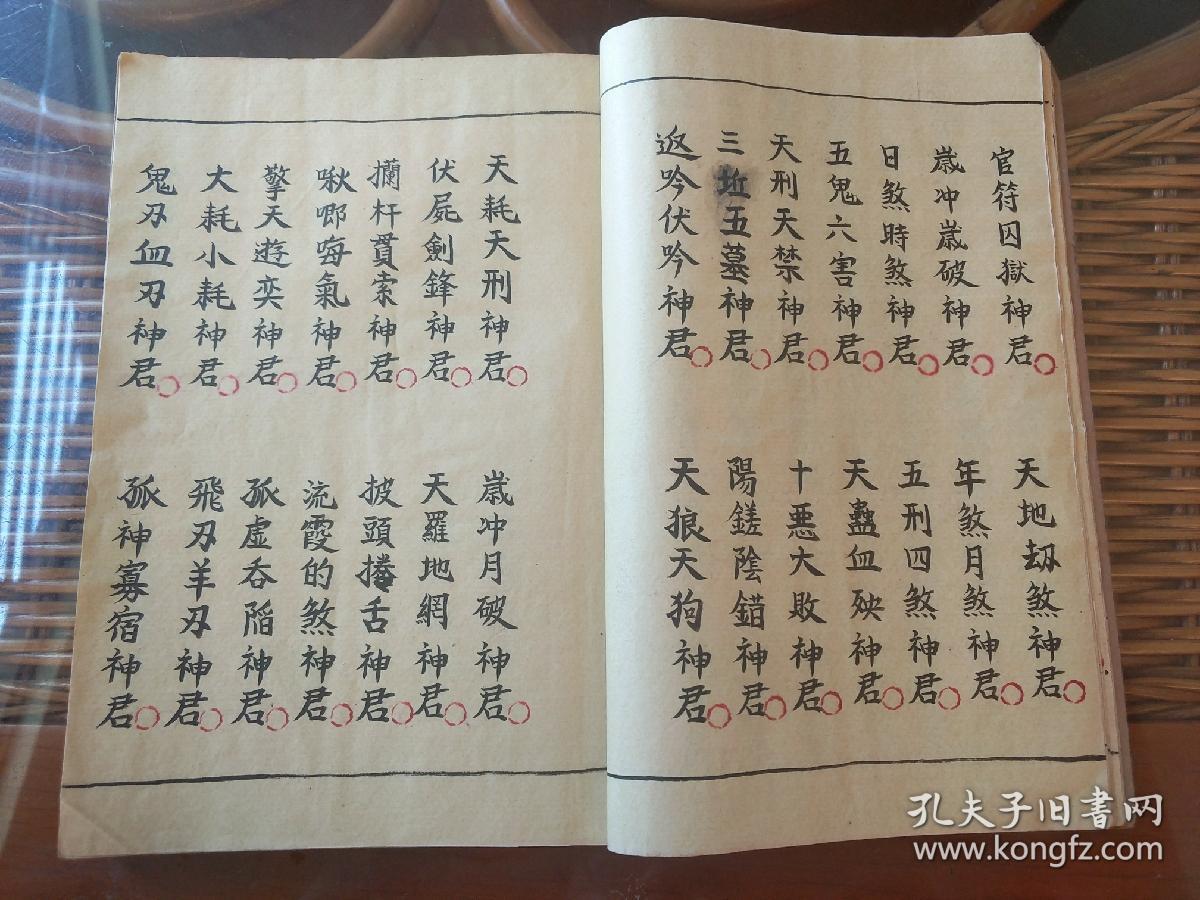 官符囚獄神君
天地劫煞神君
歲冲歲破神君
年煞月煞神君
日煞時煞神君
五刑四煞神君
五鬼六害神君
天蠱血殃神君
天刑天禁神君
十惡大敗神君
三坵五墓神君
陽鎈陰錯神君
返吟伏吟神君
天狼天狗神君
天耗天刑神君
歲冲月破神君
伏屍劍鋒神君
天羅地網神君
攔杆貫索神君
披頭捲舌神君
啾唧晦氣神君
流霞的煞神君
擎天遊奕神君
孤虛吞陷神君
大耗小耗神君
飛刃羊刃神君
鬼刃血刃神君
孤神寡宿神君
孔夫子旧书网
www.kongfz.com